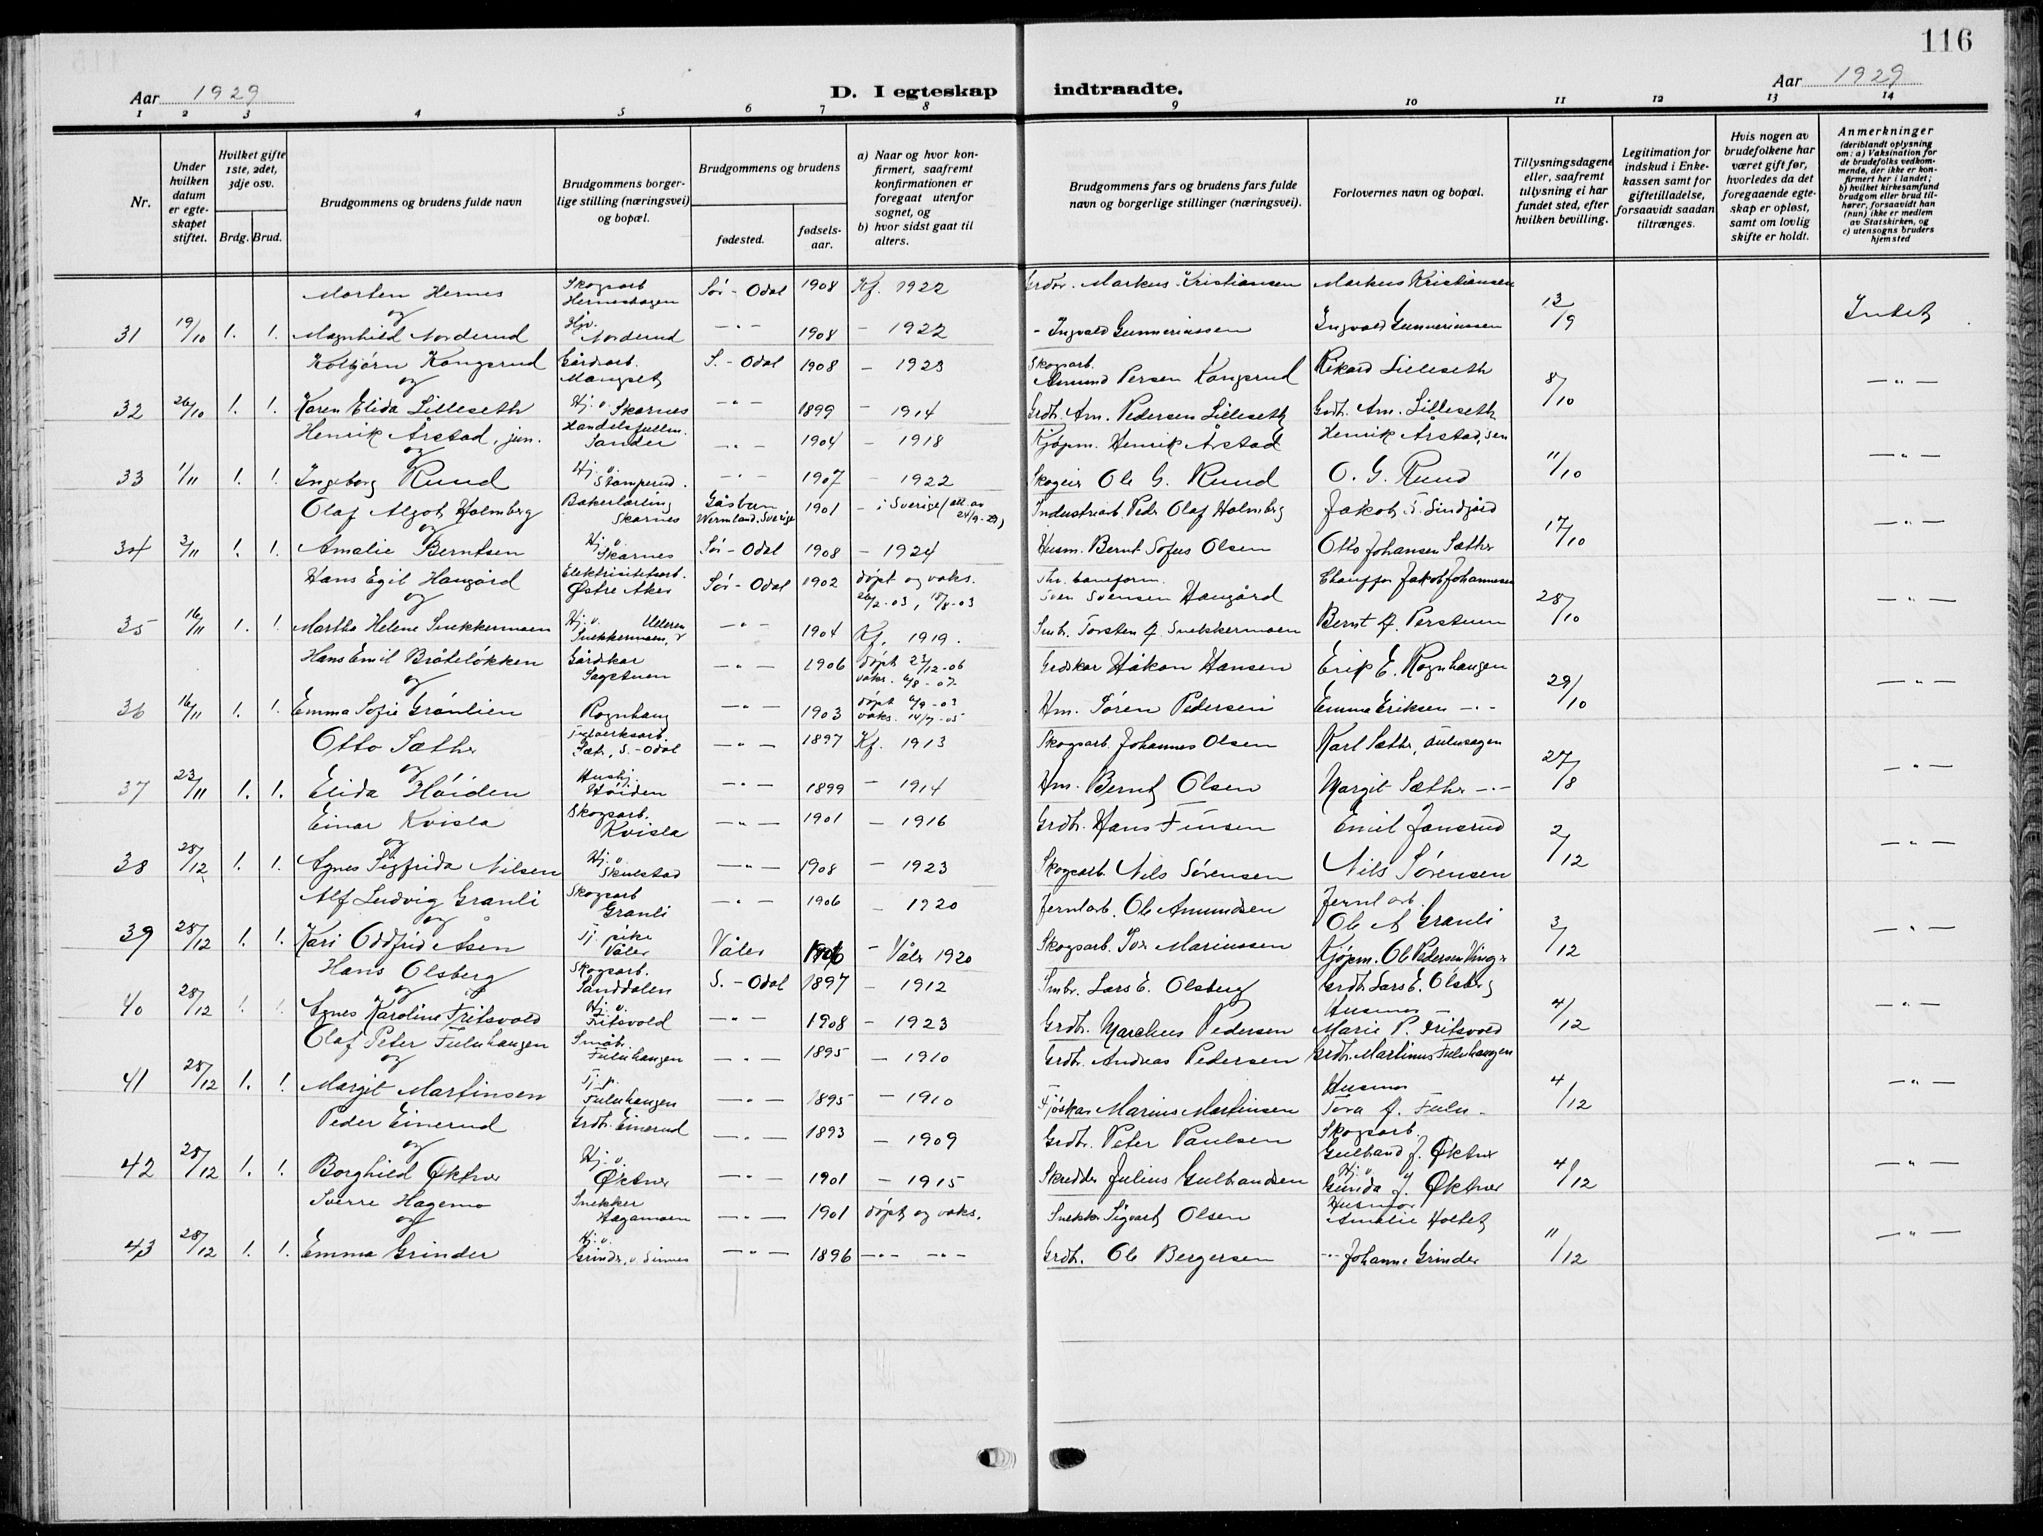 116
Aar 1929
D. I egteskap indtraadte.
Aar 1929
1 2 3 4 5 6 7 8 9 10 11 12 13 14
Nr.
Under hvilken datum er egteskapet stiftet.
Hvilket gifte 1ste, 2det, 3dje osv.
Brdg. Brud.
Brudgommens og brudens fulde navn
Brudgommens borgerlige stilling (næringsvei) og bopæl.
Brudgommens og brudens
fødested.
fødselsaar.
a) Naar og hvor konfirmert, saafremt konfirmationen er foregaat utenfor sognet, og
b) hvor sidst gaat til alters.
Brudgommens fars og brudens fars fulde navn og borgerlige stillinger (næringsvei).
Forlovernes navn og bopæl.
Tillysningsdagene eller, saafremt tillysning ei har fundet sted, efter hvilken bevilling.
Legitimation for indskud i Enkekassen samt for giftetilladelse, forsaavidt saadan tiltrænges.
Hvis nogen av brudefolkene har været gift før, hvorledes da det foregaaende egteskap er opløst, samt om lovlig skifte er holdt.
Anmerkninger (deriblandt oplysning om: a) Vaksination for de brudefolks vedkommende, der ikke er konfirmert her i landet; b) hvilket kirkesamfund brudgom eller brud tilhører, forsaavidt han (hun) ikke er medlem av Statskirken, og c) utensogns bruders hjemsted
Morten Hernes Skogsarb Herneshagen Sør-Odal 1908 Kf. 1922 Grdbr. Markus Kristiansen Markus Kristiansen
og
31 19/10 1. 1. Magnhild Norderud Hjv. Norderud -"- 1908 - 1922 - Ingvald Gunneriussen Ingvald Gunneriussen 13/9 Intet
Kolbjørn Kongsrud Gårdsarb. Mangset S.-Odal 1908 - 1923 Skogsarb. Amund Persen Kongsrud Rikard Lilleseth
og
32 26/10 1. 1. Karen Elida Lilleseth Hj. v. Skarnes -"- 1899 - 1914 Grdb. Am. Pedersen Lilleseth Grdb. Am. Lilleseth 8/10 -"-
Henrik Årstad, jun. Handelsfullm. Sander -"- 1904 - 1918 Kjøpm. Henrik Årstad Henrik Årstad, sen
og
33 1/11 1. 1. Ingeborg Ruud Hj. v. Stomperud. -"- 1907 - 1922 Skogeier Ole G. Ruud O. G. Ruud 11/10 -"-
Olaf Algot Holmberg Bakerlærling Skarnes Gåsborn Wermland, Sverige 1901 - i Sverige (att. av 24/9-29) Industriarb. Peder Olaf Holmberg Jakob T. Lindgård
og
34 2/11 1. 1. Amalie Berntsen Hj. v. Skarnes Sør-Odal 1908 - 1924 Husm. Bernt Sofus Olsen Otto Johansen Sæther 17/10 -"-
Hans Egil Haugård Elektrisitetsarb. Østre Aker Sør-Odal 1902 døpt og vaks. 26/2-03, 18/8-03 Sven Svensen Haugård Chauffør Jakob Johannesen
og
35 16/11 1. 1. Martha Helene Snekkermoen Hj. v. Ulleren Snekkermoen -"- 1904 Kf. 1919. Smbr. Torsten A. Snekkermoen Bernt A. Perstuen 28/10 -"-
Hans Emil Bråteløkken Gårdskar Sagstuen -"- 1906 døpt 23/12-06 vaks. 6/8-07 Grdskar Håkon Hansen Erik E. Rognhaugen
og
36 16/11 1. 1. Emma Sofie Grønlien Rognhaug -"- 1903 døpt 6/9-03 vaks. 14/7-05 Hm. Søren Pedersen Emma Eriksen -"- 29/10 -"-
Otto Sæther Teglverksarb. Sæt., S.-Odal -"- 1897 Kf. 1913 Skogsarb. Johannes Olsen Karl Sæther, Fuluhagen
og
37 23/11 1. 1. Elida Høiden Hushj. Høiden -"- 1899 - 1914 Hm. Bernt Olsen Margit Sæther -"- 27/8 -"-
Einar Kvisla Skogsarb. Kvisla -"- 1901 - 1916 Grdb. Hans Finsen Emil Jansrud
og
38 28/12 1. 1. Agnes Sigfrida Nilsen Hj. v. Skulstad -"- 1908 - 1923 Skogsarb. Nils Sørensen Nils Sørensen 2/12 -"-
Alf Ludvig Granli Skogsarb Granli -"- 1906 - 1920 Jernb.arb. Ole Amundsen Jernb.arb. Ole A Granli
og
39 28/12 1. 1. Kari Oddfrid Åsen Tj. pike Våler Våler 1906 - Våler 1920 Skogsarb. Iver Mariussen Kjøpm. Ole Pedersen Vinger 3/12 -"-
Hans Olsberg Skogsarb. Sanddalen S.-Odal 1897 - 1912 Smbr. Lars E. Olsberg Grdb. Lars E. Olsberg
og
40 28/12 1. 1. Agnes Karoline Fritsvold Hj. v. Fritsvold -"- 1908 - 1923 Grdb. Markus Pedersen Husmor Marie P. Fritsvold 4/12 -"-
Olaf Peter Fuluhaugen Småb. Fuluhaugen -"- 1895 - 1910 Grdb. Andreas Pedersen Grdb. Martinus Fuluhaugen
og
41 28/12 1. 1. Margit Martinsen Tj. p. Fuluhaugen -"- 1895 - 1910 Fjøskar Marius Martinsen Husmor Tora A. Fulu - 4/12 -"-
Peder Einerud Grdb. Einerud -"- 1893 - 1909 Grdb. Peter Paulsen Skogsarb. Gulbrand J. Øktner
og
42 28/12 1. 1. Borghild Øktner Hj. v. Øktner -"- 1901 - 1915 Skredder Julius Gulbrandsen Hj. v. Gunda J. Øktner 4/12 -"-
Sverre Hagemo Snekker Hagamoen -"- 1901 døpt og vaks. Snekker Sigvart Olsen Husmor Amalie Holtet
og
43 28/12 1. 1. Emma Grinder Hj. v. Grinder, v. Sinnes -"- 1896 -"- -"- Grdb. Ole Bergersen -"- Johanne Grinder 11/12 -"-